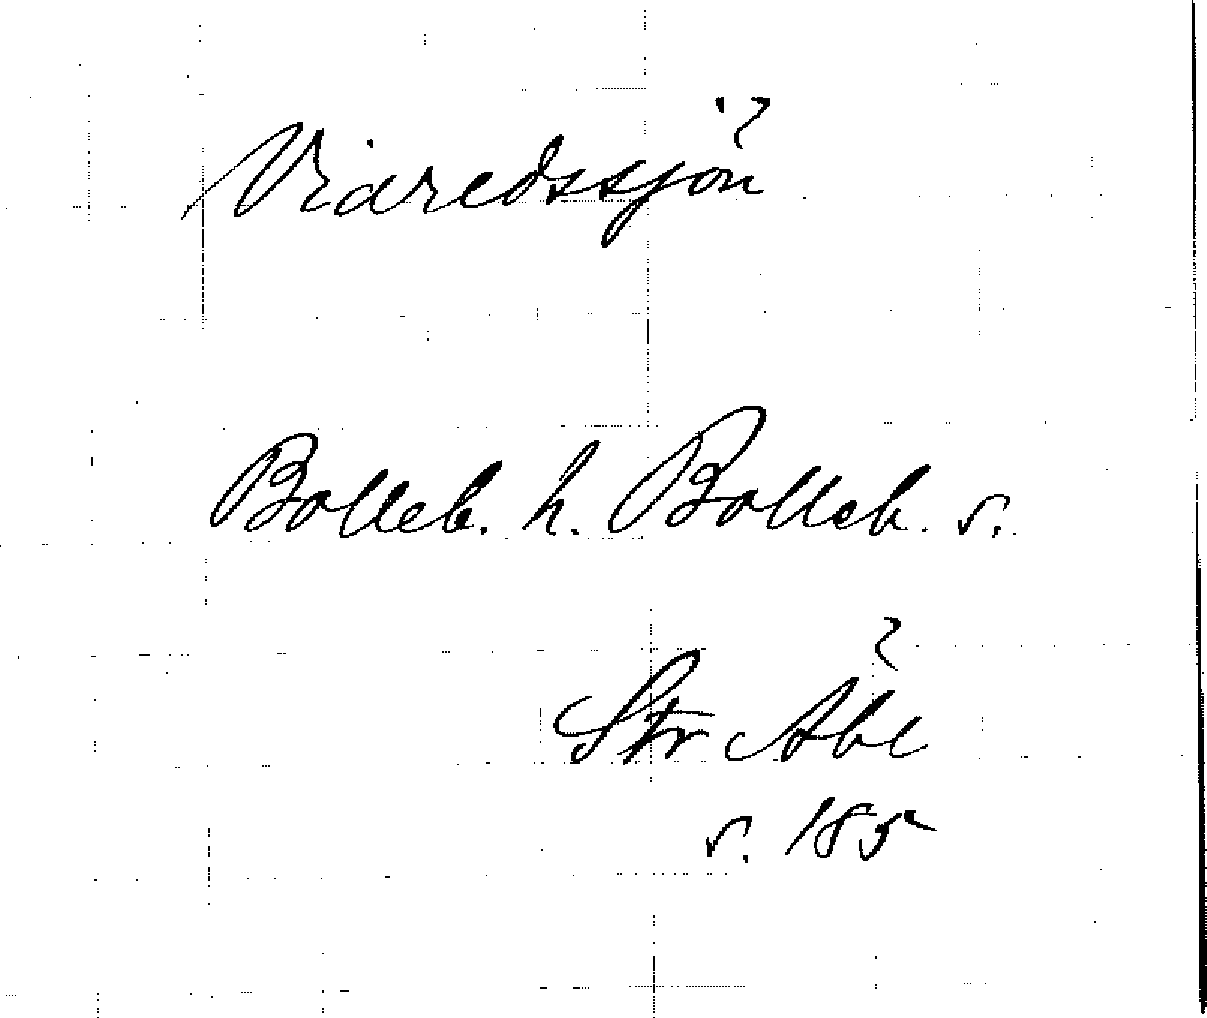 Vidredssjön
Bolleb. h. Bolleb. s.
Str Åbe
s. 185